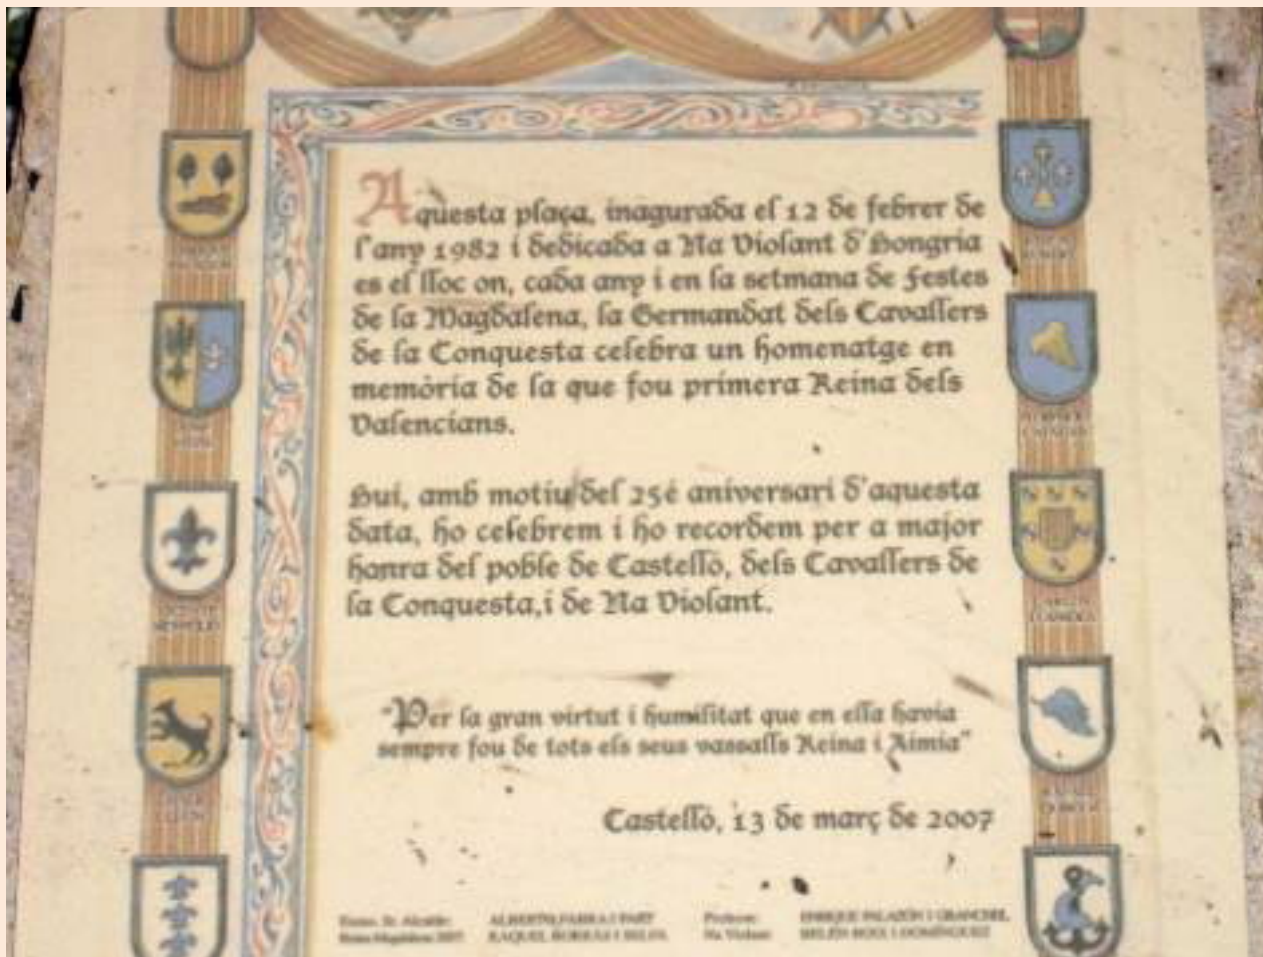 Aquesta plaça, inagurada el 12 de febrer de
l'any 1982 i dedicada a Na Violant d'Hongria
es el lloc on, cada any i en la setmana de Festes
de la Magdalena, la Germandat dels Cavallers
de la Conquesta celebra un homenatge en
memòria de la que fou primera Reina dels
Valencians.
Hui, amb motiu del 25é aniversari d'aquesta
data, ho celebrem i ho recordem per a major
honra del poble de Castelló, dels Cavallers de
la Conquesta, i de Na Violant.
"Per la gran virtut i humilitat que en ella havia
sempre fou de tots els seus vassalls Reina i Aimia"
Castelló, 13 de març de 2007
Excmo. Sr. Alcalde: ALBERTO FABRA I PART
RAQUEL
Na Violant: